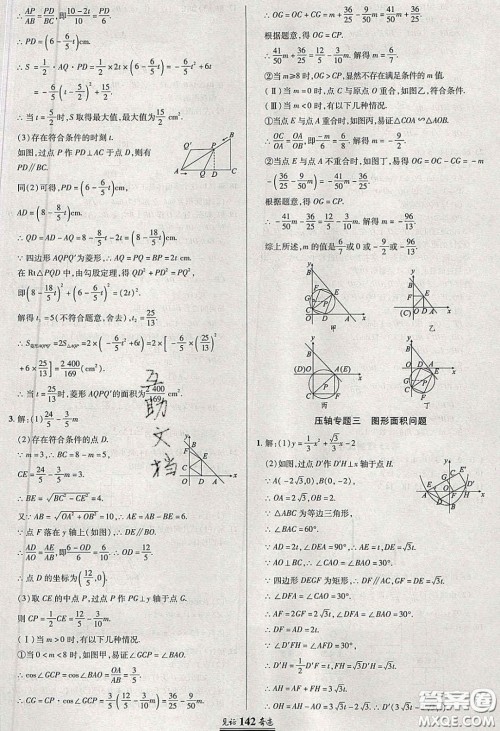 ∴ AP/AB = PD/BC, 即 (10-2t)/10 = PD/6.
∴ PD = (6 - 6/5 t) cm.
∴ S = 1/2 · AQ · PD = 1/2 × 2t × (6 - 6/5 t) = -6/5 t² + 6t
∴ 当 t = 5/2 s 时, S 取得最大值, 最大值为 15/2 cm².
(3)存在符合条件的时刻 t.
如图, 过点 P 作 PD⊥AC 于点 D, 则有
PD∥BC.
同(2)可得, PD = (6 - 6/5 t) cm,
AD = (8 - 8/5 t) cm,
∴ QD = AD - AQ = 8 - 8/5 t - 2t = (8 - 18/5 t) cm.
∵ 四边形 AQPQ′为菱形, ∴ AQ = PQ = BP = 2t cm.
在 Rt△PQD 中, 由勾股定理, 得 QD² + PD² = PQ²,
即 (8 - 18/5 t)² + (6 - 6/5 t)² = (2t)².
解得 t₁ = 5(不符合题意, 舍去), t₂ = 25/13.
+ 6 × 25/13] = 2 400/169 (cm²).
∴ 当 t = 25/13 时, 菱形 AQPQ′的面积为 2 400/169 cm².
3. 解:(1) 24/5 - 3/5 m
(2)存在符合条件的点 D.
∵ m = 3, ∴ BC = 8 - m = 5.
∴ BE = √(BC² - CE²) = 4.
又∵ AB = √(OA² + OB²) = 10, ∴ AE = 6.
∵ 点 F 落在 y 轴上(如图), ∴ DE∥BO.
∴ AD/AO = AE/AB, 即 (6-OD)/6 = 6/10. ∴ OD = 12/5.
∴ 点 D 的坐标为 (12/5, 0).
(3)取 CE 的中点 P, 过点 P 作 PG⊥y 轴于点 G.
则 CP = 1/2 CE = 12/5 - 3/10 m.
(Ⅰ)当 m>0 时, 有以下几种情况.
①当 0<m<8 时, 如图甲, 易证∠GCP = ∠BAO.
∴ cos∠GCP = cos∠BAO = OA/AB = 3/5.
∴ OG = OC + CG = m + 36/25 - 9/50 m = 41/50 m + 36/25.
根据题意, 得 OG = CP.
∴ 41/50 m + 36/25 = 12/5 - 3/10 m. 解得 m = 6/7.
②当 m≥8 时, OG>CP, 显然不存在满足条件的 m 值.
(Ⅱ)当 m = 0 时, 点 C 与原点 O 重合, 如图乙, 符合条件.
(Ⅲ)当 m<0 时, 有以下几种情况.
①当点 E 与点 A 重合时, 如图丙, 易证△COA∽△AOB.
∴ OC/OA = OA/OB, 即 -m/6 = 6/8. 解得 m = -9/2.
②当点 E 与点 A 不重合时, 如图丁, 易得 OG = OC - CG = -m -
根据题意, 得 OG = CP.
∴ -41/50 m - 36/25 = 12/5 - 3/10 m. 解得 m = -96/13.
综上所述, m 的值为 6/7 或 0 或 -9/2 或 -96/13.
甲
乙
丙
丁
压轴专题三 图形面积问题
(2)如图, 过点 D′作 D′H⊥x 轴于点 H.
∵ A(-2√3, 0), B(0, -2),
∵ △ABC 为等边三角形,
∴ ∠BAC = 60°.
∵ AD = 2t, ∴ DE = AE = √3t.
∴ ∠EAO = ∠BAO = 30°.
∵ 四边形 DEGF 为矩形, ∴ DF∥AC, GF = DE = √3t.
∴ ∠DFA = ∠CAO = 30°.
∴ AF = 2GF = 2√3t, ∠DFA = ∠BAO = 30°.
∴ DF = AD = 2t.
∵ D′F = DF = 2t, ∠D′FH = ∠DFA = 30°,
∴ D′H = 1/2 D′F = t, FH = √3/2 D′F = √3t.
∴ AH = AF + FH = 3√3t.
互助文档
见证 142 奇迹
答案圈
MXQE.COM